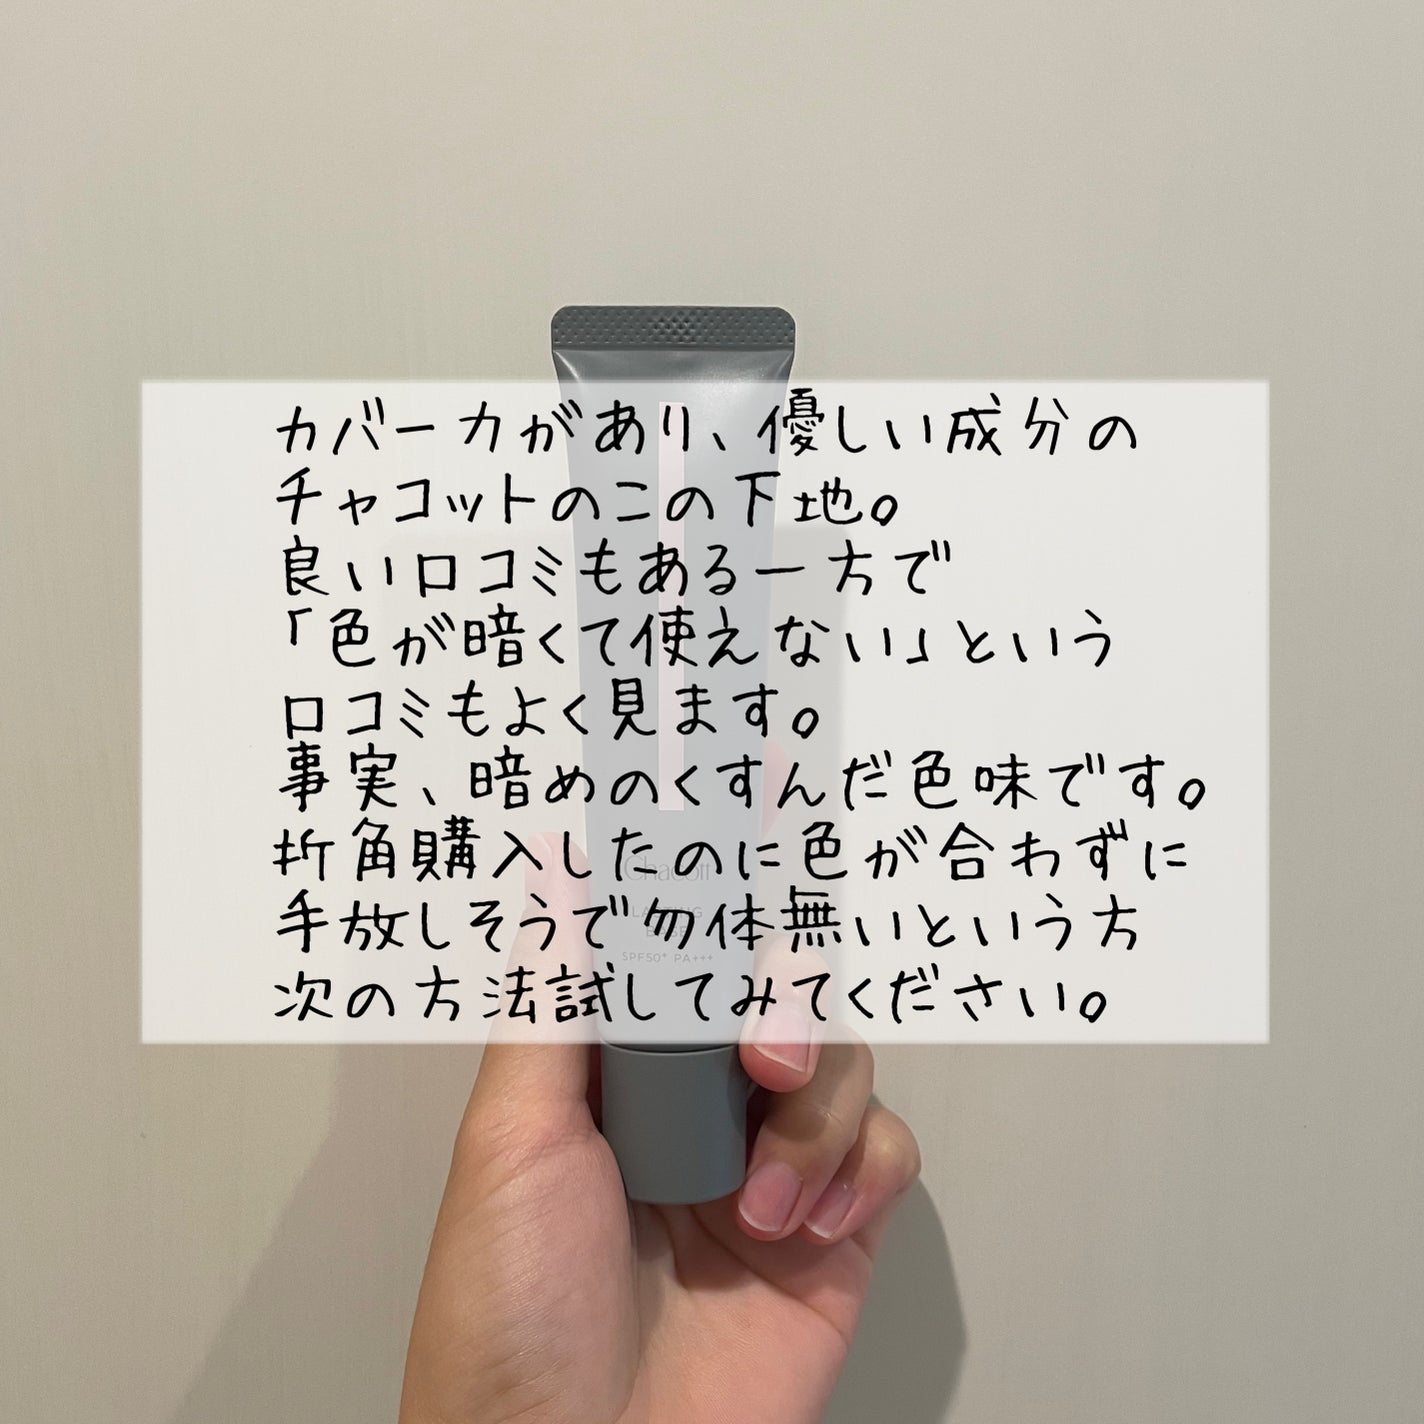 カバー力があり、優しい成分の
チャコットのこの下地。
良い口コミもある一方で
「色が暗くて使えない」という
口コミもよく見ます。
事実、暗めのくすんだ色味です。
折角購入したのに色が合わずに
手放しそうで勿体無いという方
次の方法試してみてください。
Chacott
LASTING
BASE
SPF50+ PA+++